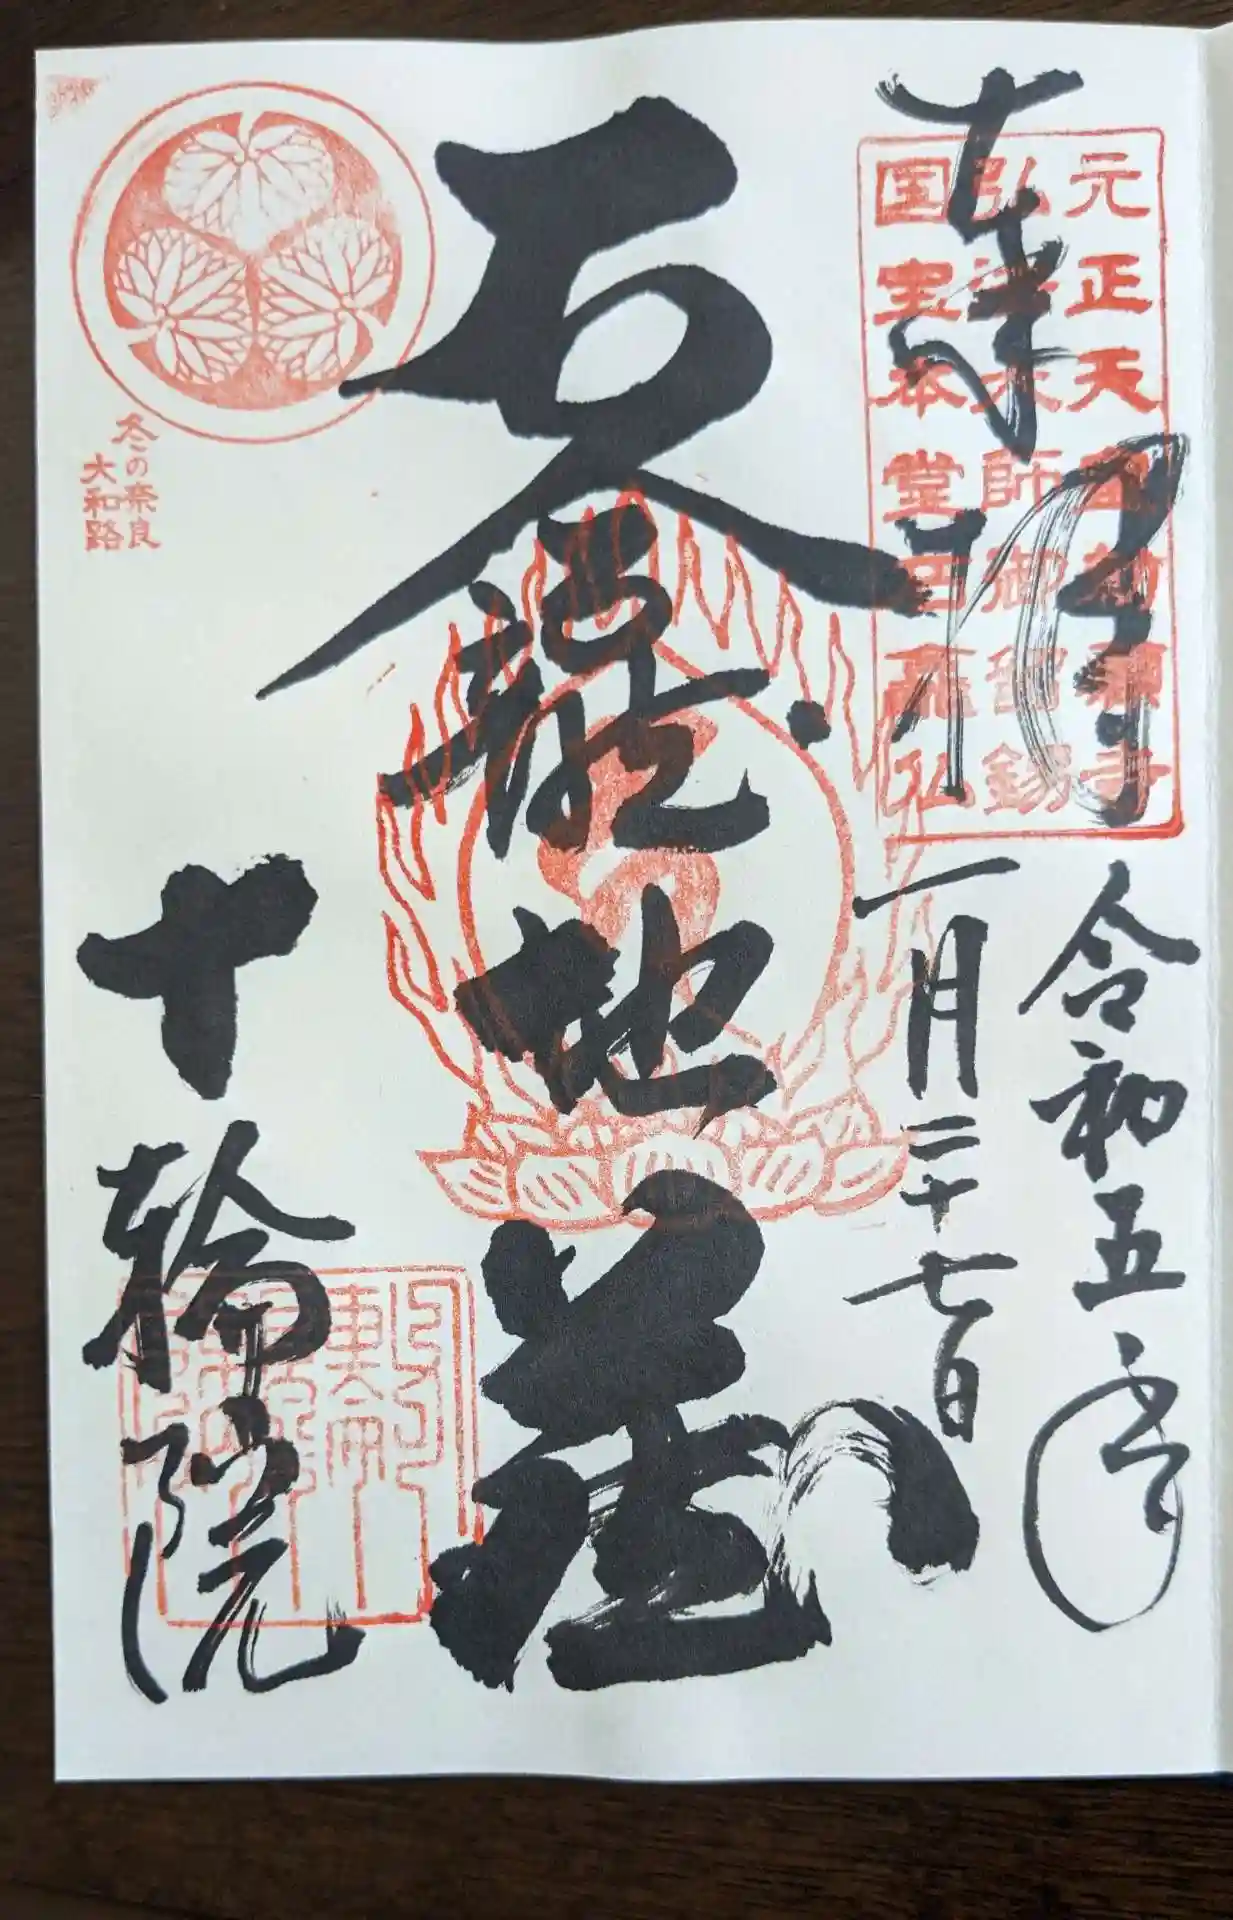 奉拝
元正天皇勅願寺
弘法大師御留錫
国宝本堂石龕仏
令和五年
一月二十七日
石龕地蔵
十輪院
冬の奈良
大和路